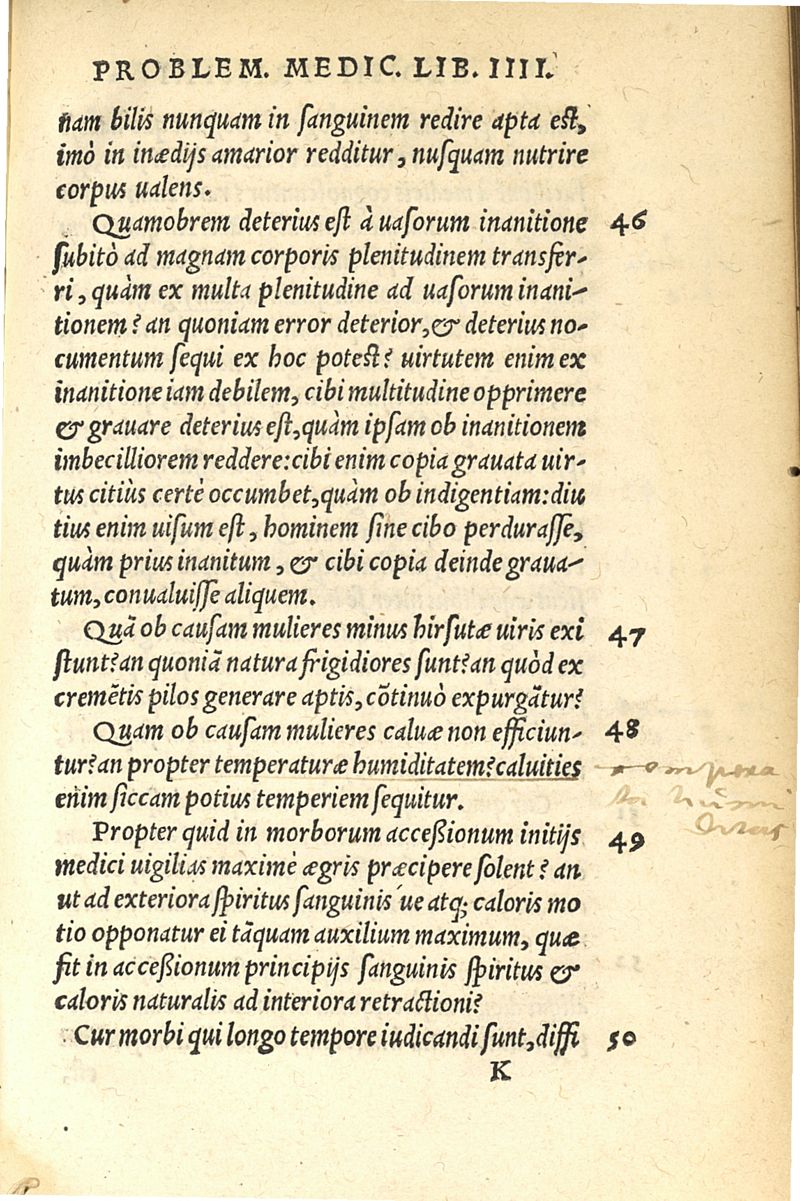 PROBLEM. MEDIC. LIB. IIII.
nam bilis nunquam in ſanguinem redire apta eſt,
imò in inædijs amarior redditur, nuſquam nutrire
corpus ualens.
Quamobrem deterius eſt à uaſorum inanitione 46
ſubitò ad magnam corporis plenitudinem transfer-
ri, quàm ex multa plenitudine ad uaſorum inani-
tionem? an quoniam error deterior, & deterius no-
cumentum ſequi ex hoc poteſt? uirtutem enim ex
inanitione iam debilem, cibi multitudine opprimere
& grauare deterius eſt, quàm ipſam ob inanitionem
imbecilliorem reddere: cibi enim copia grauata uir-
tus citiùs certè occumbet, quàm ob indigentiam: diu
tius enim uiſum eſt, hominem ſine cibo perduraſſe,
quàm prius inanitum, & cibi copia deinde graua-
tum, conualuiſſe aliquem.
Quã ob cauſam mulieres minus hirſutæ uiris exi 47
ſtunt? an quoniã natura frigidiores ſunt? an quòd ex
cremẽtis pilos generare aptis, cõtinuò expurgãtur?
Quam ob cauſam mulieres caluæ non efficiun- 48
tur? an propter temperaturæ humiditatem? caluities
enim ſiccam potius temperiem ſequitur.
Propter quid in morborum acceßionum initijs 49
medici uigilias maximè ægris præcipere ſolent? an
ut ad exteriora ſpiritus ſanguinis ue atq; caloris mo
tio opponatur ei tãquam auxilium maximum, quæ
fit in acceßionum principijs ſanguinis ſpiritus &
caloris naturalis ad interiora retractioni?
Cur morbi qui longo tempore iudicandi ſunt, diffi 50
K